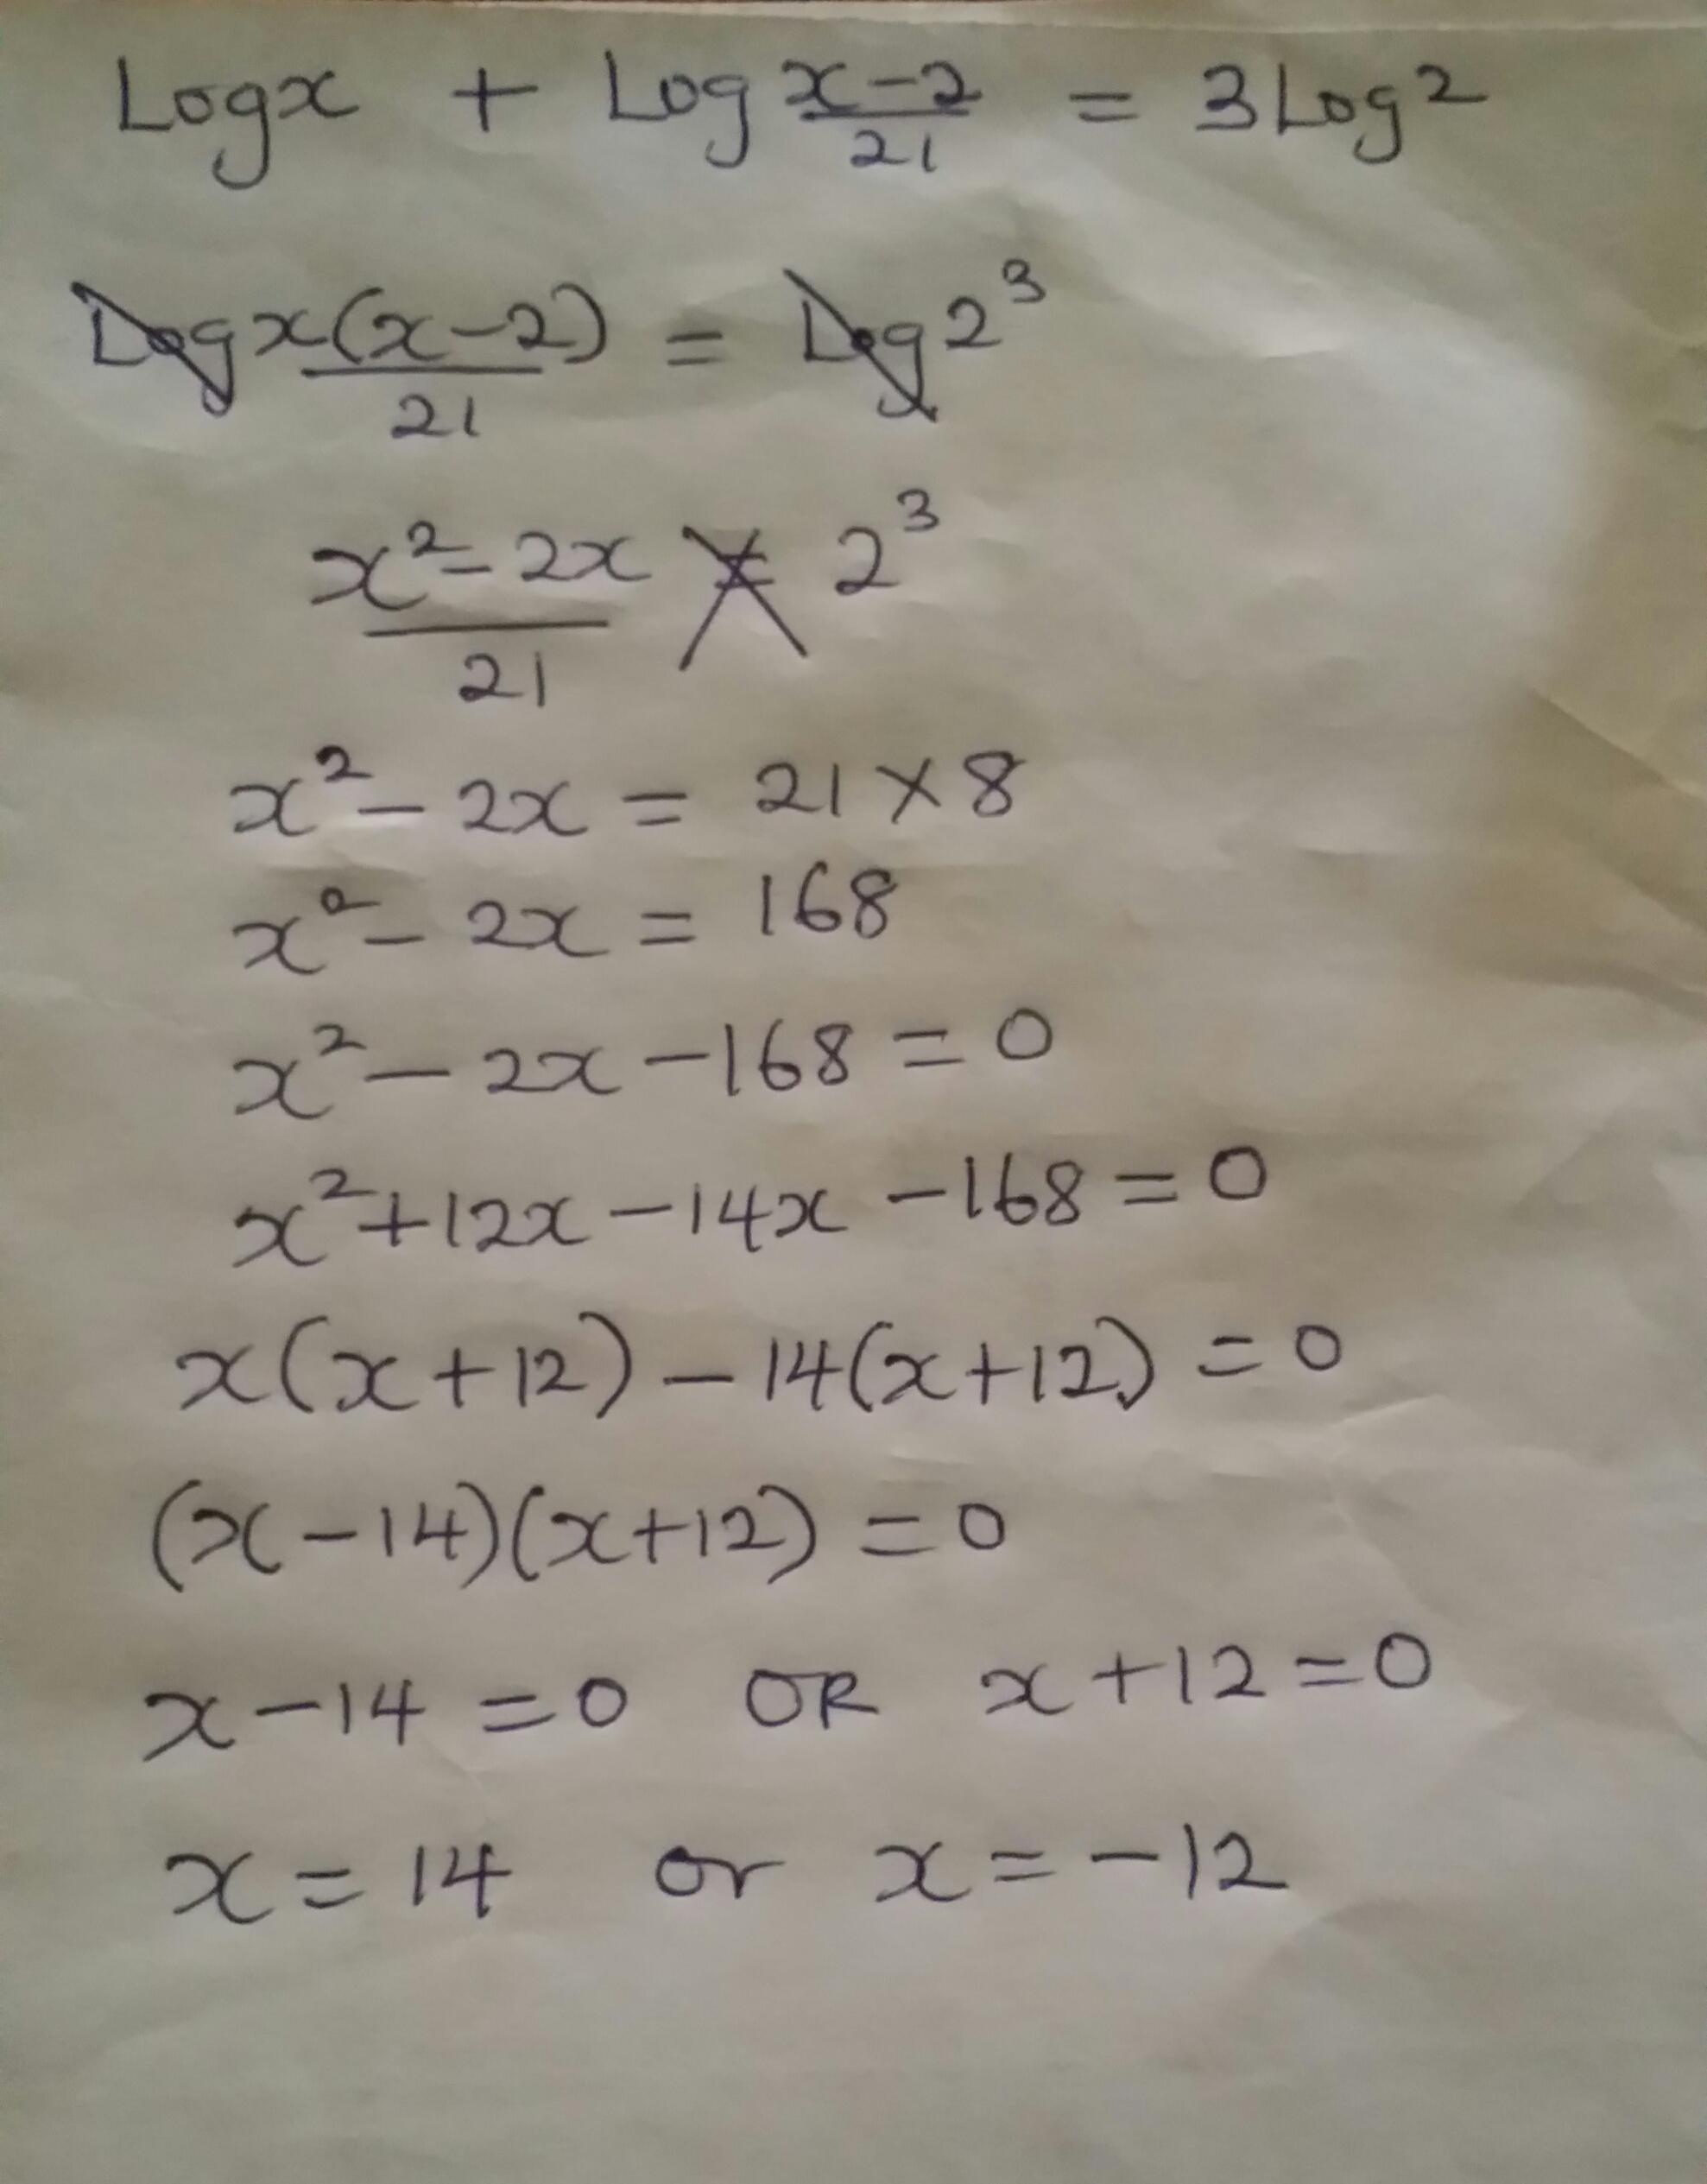 Logx + Log x-2/21 = 3Log2
Log x(x-2)/21 = Log2³
x²-2x/21 = 2³
x²-2x = 21×8
x²-2x = 168
x²-2x-168=0
x²+12x-14x-168=0
x(x+12)-14(x+12)=0
(x-14)(x+12)=0
x-14=0 OR x+12=0
x=14 or x=-12